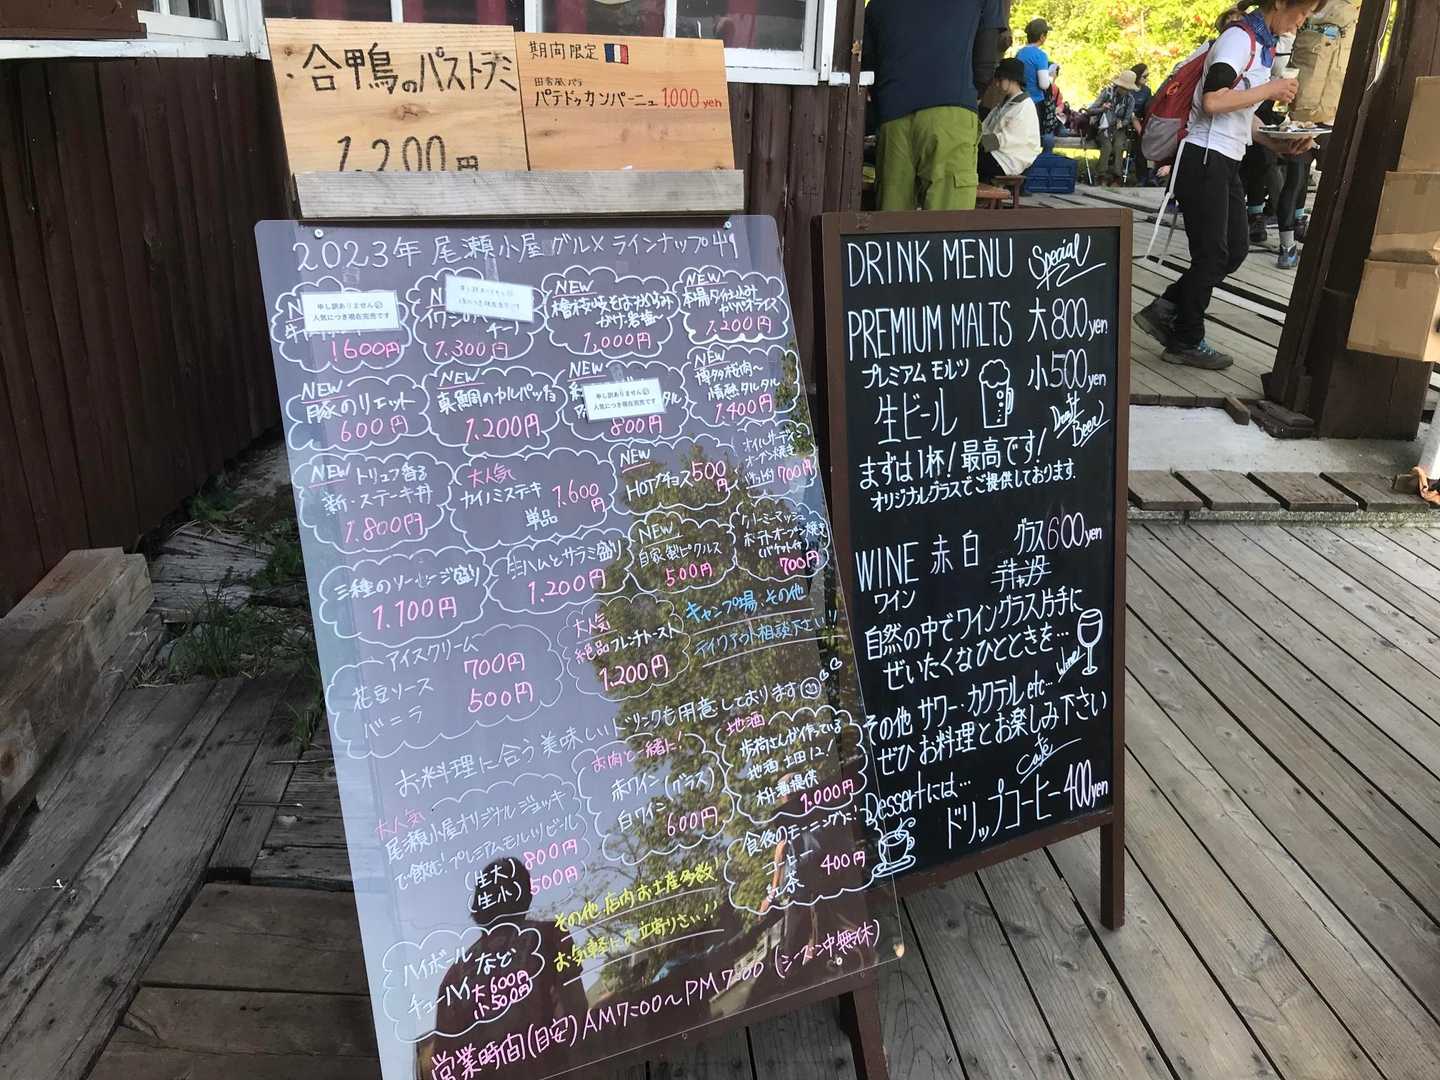 合鴨のパストラミ
1,200円
期間限定
田舎風パテ
パテドゥカンパーニュ 1,000 yen
2023年 尾瀬小屋 グルメ ラインナップ
申し訳ありません
人気につき現在完売です
1600円
NEW
申し訳ありません
人気につき現在完売です
1,300円
NEW
1,000円
NEW
1,200円
NEW
豚のリエット
600円
NEW
真鯛のカルパッチョ
1,200円
申し訳ありません
人気につき現在完売です
800円
NEW
博多桜肉〜
情熱タルタル
1,400円
NEW トリュフ香る
新・ステーキ丼
1,800円
大人気
カイノミステーキ
単品
1,600円
NEW
HOTナチョス 500円
オイルサーディン
オーブン焼き
700円
三種のソーセージ盛り
1,100円
生ハムとサラミ盛り
1,200円
NEW
自家製ピクルス
500円
クリーミーマッシュ
ポテトオーブン焼き
(バケット付)
700円
アイスクリーム
花豆ソース 700円
バニラ 500円
大人気
絶品フレンチトースト
1,200円
キャンプ場、その他
テイクアウト相談下さい!!
お料理に合う美味しいドリンクも用意しております
大人気
尾瀬小屋オリジナルジョッキ
で飲む!プレミアムモルツビール
(生大) 800円
(生小) 500円
お肉と一緒に!
赤ワイン(グラス)
白ワイン 600円
地酒
歩荷さんが作っている
地酒 土田12!
枡酒提供
1,000円
食後のモーニングに!
コーヒー
紅茶 400円
その他、店内お土産多数!
お気軽にお立寄り下さい!!
ハイボール
チューハイ など
大 600円
小 500円
営業時間(目安) AM7:00〜PM7:00 (シーズン中無休)
DRINK MENU Special
PREMIUM MALTS 大 800yen
プレミアム モルツ 小 500yen
生ビール
Draft Beer
まずは1杯!最高です!
オリジナルグラスでご提供しております.
WINE 赤 白 グラス600yen
ワイン デキャンタ
自然の中でワイングラス片手に
ぜいたくなひとときを…
Wine!
その他 サワー・カクテル etc…
ぜひ お料理とお楽しみ下さい
Cafe
Dessertには…
ドリップコーヒー 400yen